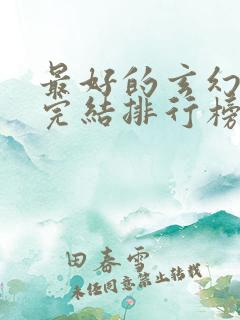 最好的玄幻
完结排行榜
田春雪
未经同意禁止转载